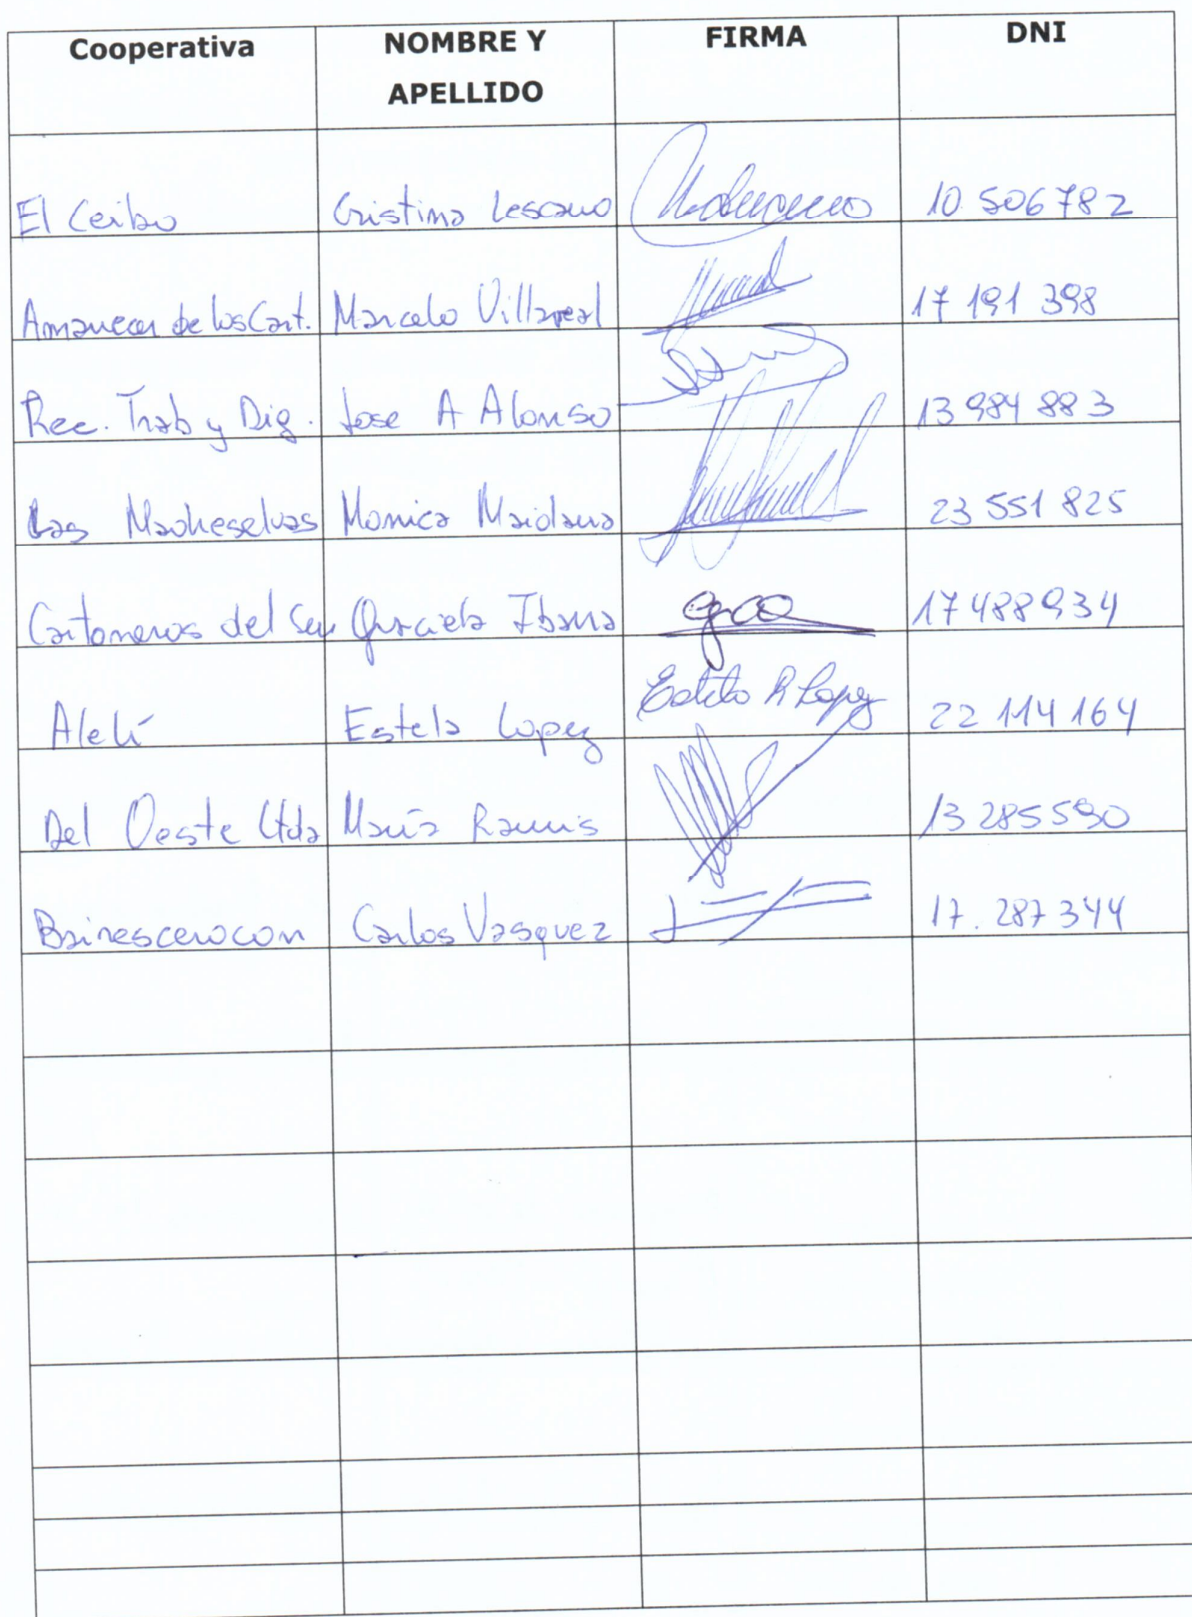 Cooperativa NOMBRE Y APELLIDO FIRMA DNI
El Ceibo Cristina Lescano 10 506782
Amanecer de los Cart. Marcelo Villareal 17 191 398
Rec. Trab y Dig. Jose A Alonso 13 984 883
Las Madreselvas Monica Maidana 23 551 825
Cartoneros del Graciela Ibarra 17488934
Alelí Estela Lopez Estela R Lopez 22 114 164
Del Oeste Ltda María Ramis 13 285590
Bairescerocon Carlos Vasquez 17. 287 344